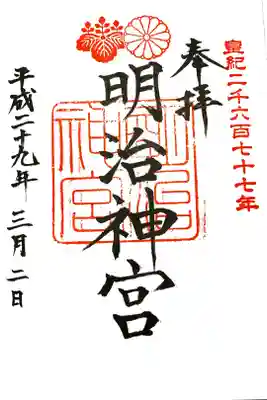 皇紀二千六百七十七年
奉拝
明治神宮
明治神宮
平成二十九年 三月 二日